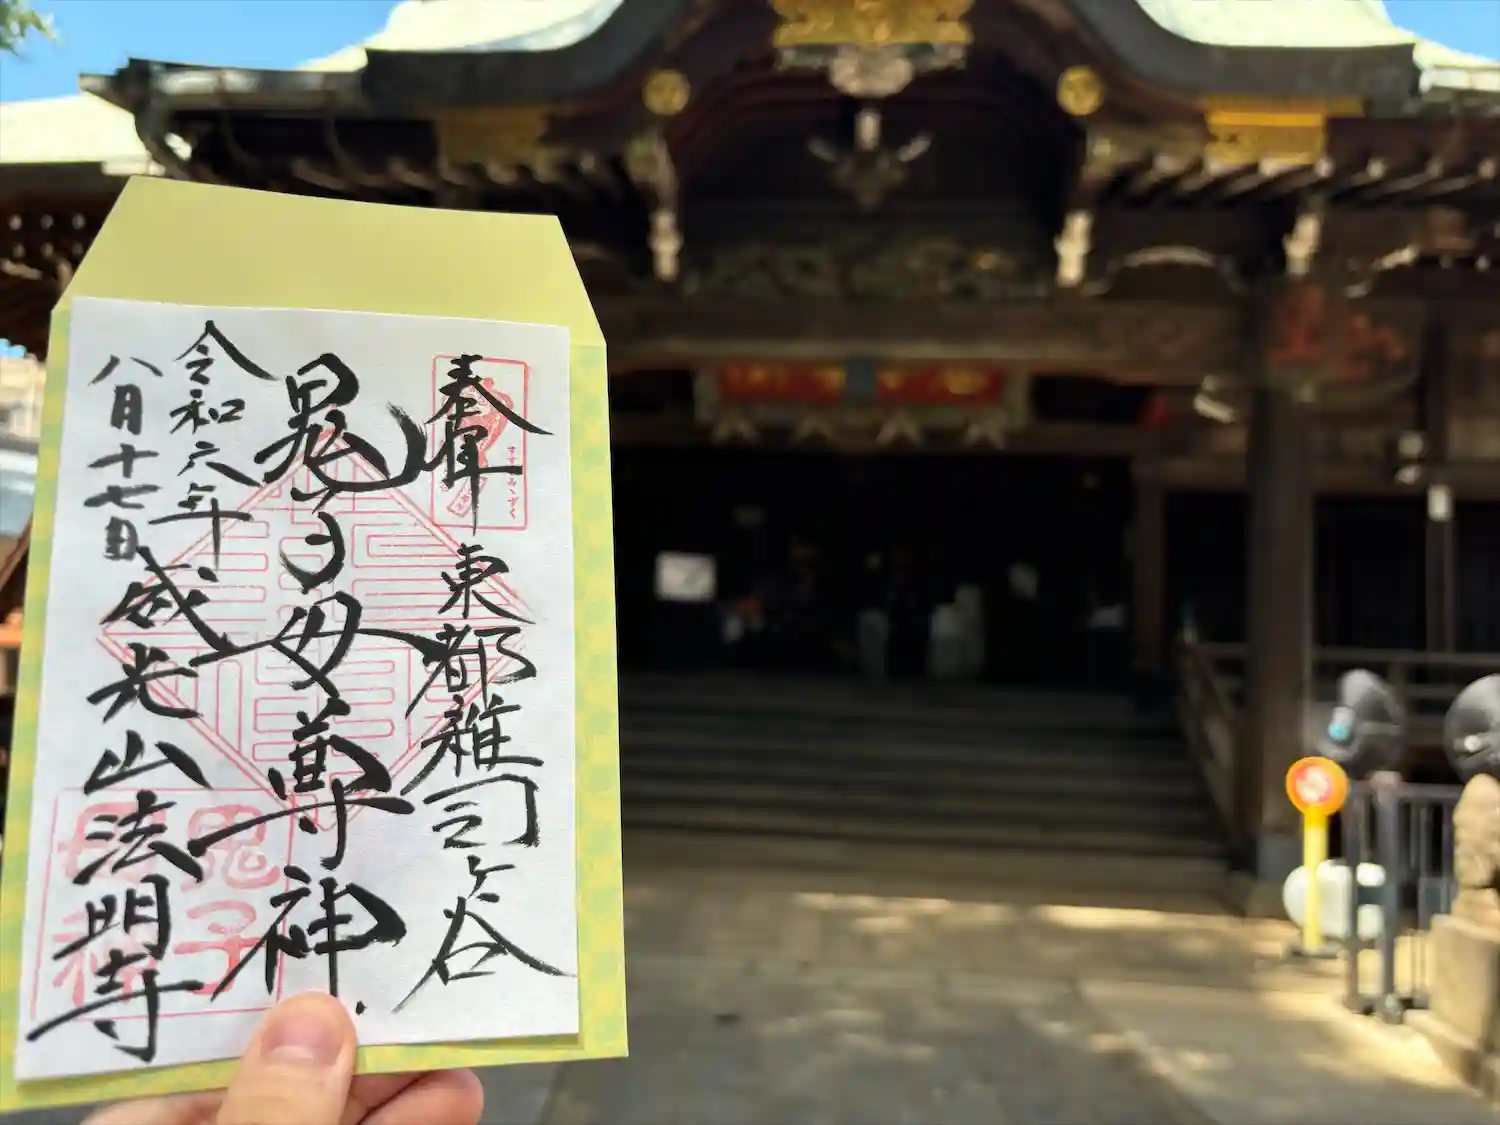 奉拝
東都雑司ヶ谷
鬼子母尊神
令和六年
八月十七日
威光山法明寺
すすきみゝずく
鬼子
母神